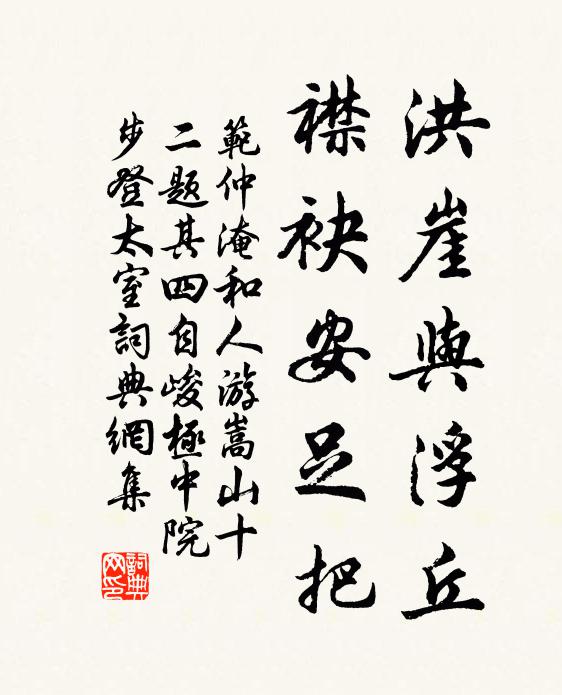 洪崖與浮丘
襟袂安足把
範仲淹和人游嵩山十
二题其四自峻極中院
步登太室詞典網集
詞典
网印